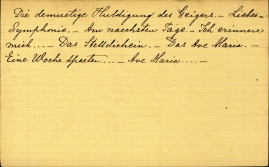 Die demuetige Huldigung des Geigers. – Liebes-
Symphonie. – Am naechsten Tage. – Ich erinnere
mich.... – Das Stelldichein. – Das Ave Maria. –
Eine Woche spaeter.... – Ave Maria.... –